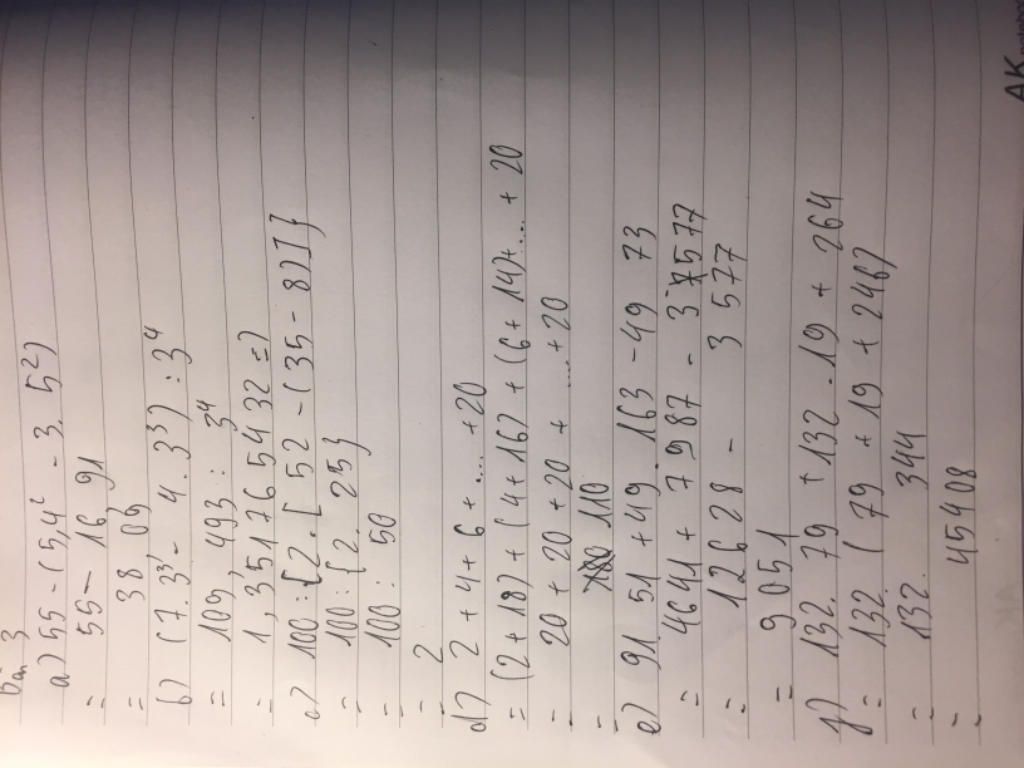 Bài 3
a) 55 - (5,4² - 3. 5²)
= 55 - 16 91
= 38 09
b) (7.3³ - 4.3³) : 3⁴
= 109, 493 : 3⁴
= 1,35176 5432 =)
c) 100 : {2. [52 - (35 - 8)]}
= 100 : {2. 25}
= 100 : 50
= 2
d) 2 + 4 + 6 + .... + 20
= (2 + 18) + (4 + 16) + (6 + 14) + ... + 20
= 20 + 20 + 20 + .... + 20
= 110
e) 91. 51 + 49. 163 - 49 73
= 4641 + 7 987 - 3 577
= 126 28 - 3 577
= 9 051
f) 132. 79 + 132 . 19 + 264
= 132. ( 79 + 19 + 246)
= 132. 344
= 454 08
AK